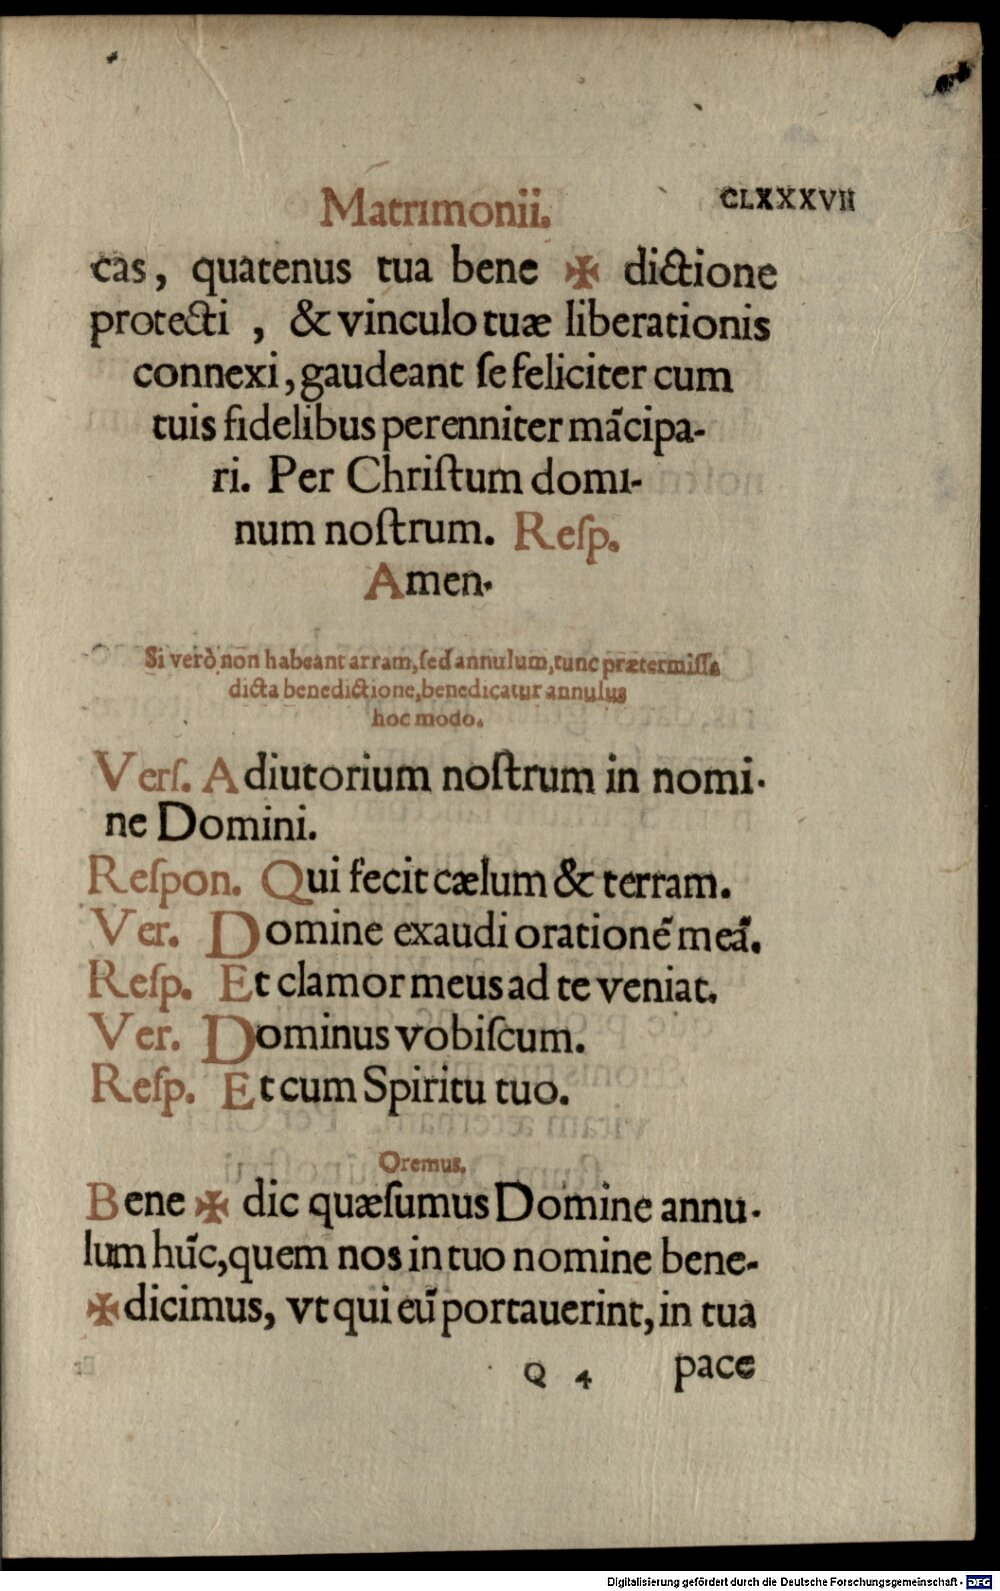 Matrimonii. CLXXXVII
cas, quatenus tua bene ✠ dictione
protecti , & vinculo tuæ liberationis
connexi, gaudeant ſe feliciter cum
tuis fidelibus perenniter mãcipa-
ri. Per Chriſtum domi-
num noſtrum. Reſp.
Amen.
Si verò non habeant arram, ſed annulum, tunc prætermiſſa
dicta benedictione, benedicatur annulus
hoc modo.
Verſ. Adiutorium noſtrum in nomi-
ne Domini.
Reſpon. Qui fecit cælum & terram.
Ver. Domine exaudi orationẽ meã.
Reſp. Et clamor meus ad te veniat.
Ver. Dominus vobiſcum.
Reſp. Et cum Spiritu tuo.
Oremus.
Bene ✠ dic quæſumus Domine annu-
lum hũc, quem nos in tuo nomine bene-
✠ dicimus, vt qui eũ portauerint, in tua
Q 4 pace
Digitalisierung gefördert durch die Deutsche Forschungsgemeinschaft - DFG